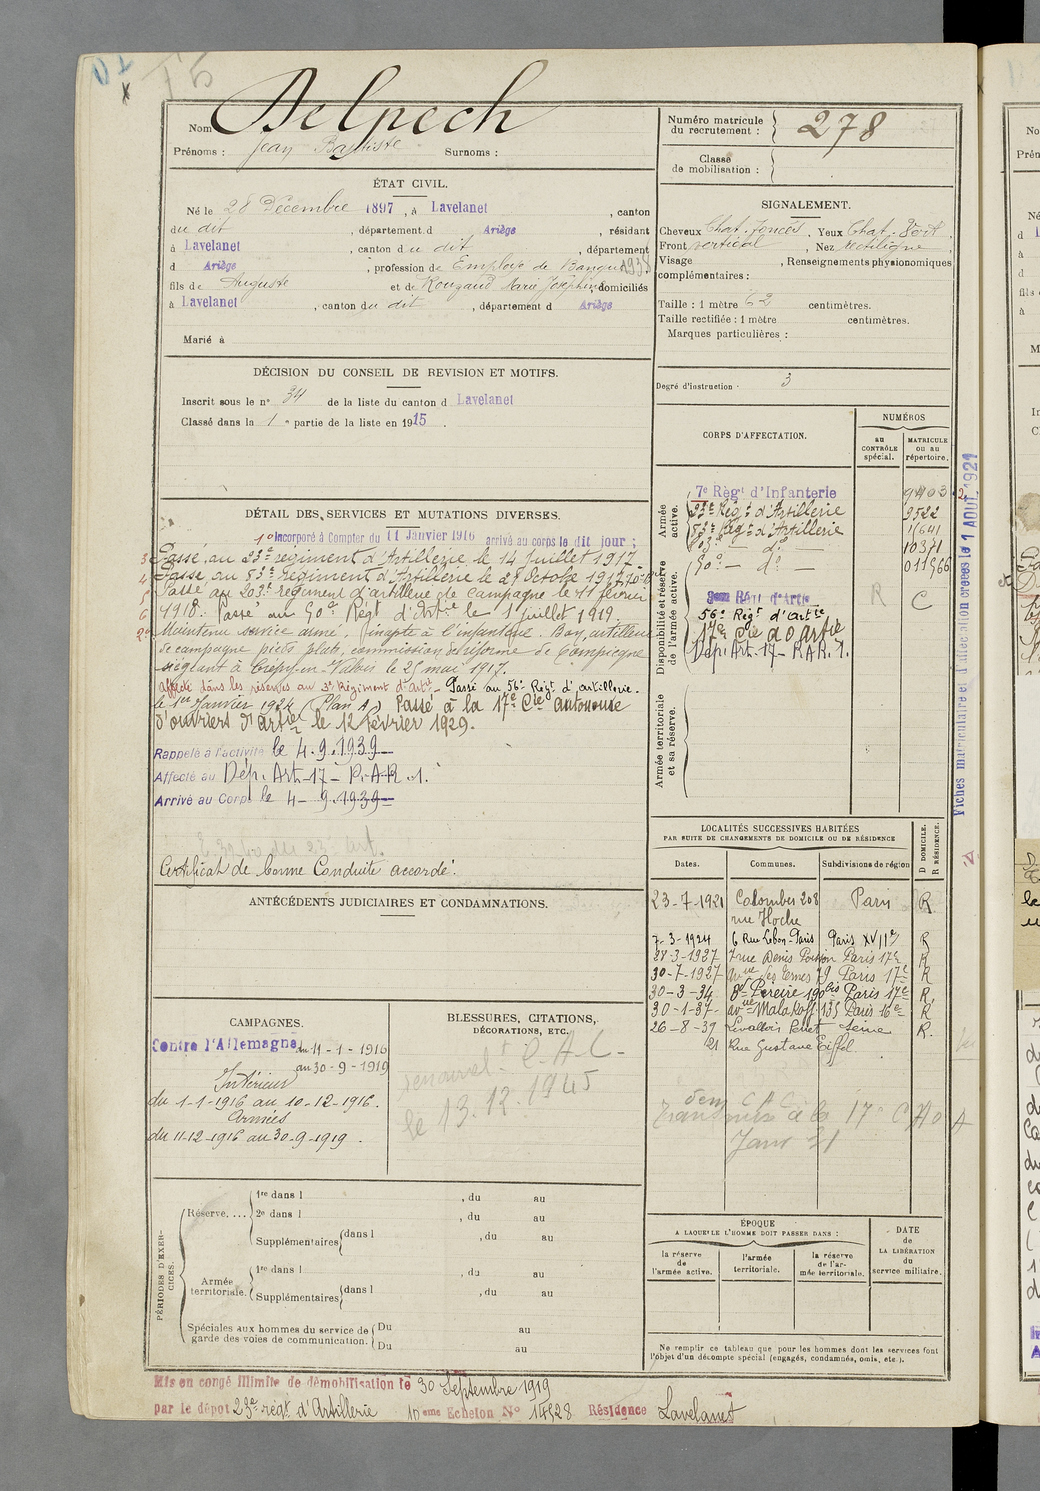 Delpech
Nom
Prénoms : Jean Baptiste Surnoms :
Numéro matricule
du recrutement : 278
Classe
de mobilisation :
ÉTAT CIVIL.
Né le 28 Décembre 1897, à Lavelanet, canton
du dit, département d Ariège, résidant
à Lavelanet, canton du dit, département
d Ariège, profession de Employé de Banque
fils de Auguste et de Rougaud Marie Joséphine, domiciliés
à Lavelanet, canton du dit, département d Ariège
Marié à
SIGNALEMENT.
Cheveux Chat. foncés. Yeux Chat.
Front vertical, Nez rectiligne
Visage, Renseignements physionomiques
complémentaires :
Taille : 1 mètre 62 centimètres.
Taille rectifiée : 1 mètre centimètres.
Marques particulières :
Degré d'instruction. 3
DÉCISION DU CONSEIL DE REVISION ET MOTIFS.
Inscrit sous le n° 34 de la liste du canton d Lavelanet
Classé dans la 1e partie de la liste en 1915.
DÉTAIL DES SERVICES ET MUTATIONS DIVERSES.
1° Incorporé à Compter du 11 Janvier 1916 arrivé au corps le dit jour ;
Passé au 23e régiment d'Artillerie le 14 Juillet 1917.
Passé au 83e régiment d'Artillerie le 21 Octobre 1917
Passé au 203e régiment d'artillerie de campagne le 11 février
1918. Passé au 90e Régt d'Artie le 1 juillet 1919.
Maintenu service armé, inapte à l'infanterie. Bon artilleur
de campagne pieds plats, commission de réforme de Compiègne
siégeant à Crépy-en-Valois le 25 mai 1917.
affecté dans les réserves au 3e Régiment d'Artie Passé au 56e Régt d'artillerie.
le 1er Janvier 1924 (Plan A) Passé à la 17e Cie autonome
d'ouvriers d'artie le 12 février 1929.
Rappelé à l'activité le 4.9.1939
Affecté au Dép. Art. 17 - P.A.R. 1.
Arrivé au Corps le 4-9.1939
Certificat de bonne Conduite accordé.
CORPS D'AFFECTATION.
NUMÉROS
au
CONTRÔLE
spécial.
MATRICULE
ou au
répertoire.
Armée
active.
7e Régt d'Infanterie 9403
23e Régt d'Artillerie 9522
83e Régt d'Artillerie 11641
203e - do - 10371
90e - do - 011966
Disponibilité et réserve
de l'armée active.
3em Régt d'Artie R C
56e Régt d'artie
17e Cie d'O artie
Dép. Art. 17 - P.A.R. 1.
Armée territoriale
et sa réserve.
Fiches matriculaire et d'affectation créées le 1 AOUT 1921
ANTÉCÉDENTS JUDICIAIRES ET CONDAMNATIONS.
LOCALITÉS SUCCESSIVES HABITÉES
PAR SUITE DE CHANGEMENTS DE DOMICILE OU DE RÉSIDENCE
Dates. Communes. Subdivisions de région
D DOMICILE.
R RÉSIDENCE.
23-7-1921 Colombes 208 Paris R
rue Hoche
7-3-1924 6 Rue Lebon-Paris Paris XVIIe R
28-3-1927 7 rue Denis Poisson Paris 17e R
30-7-1927 Avue des Ternes 79 Paris 17e R
30-3-34 Bd Pereire 190bis Paris 17e R
30-1-37 avue Malakoff 135 Paris 16e R
26-8-39 Levallois Perret Seine R.
21 Rue Gustave Eiffel
CAMPAGNES.
Contre l'Allemagne du 11-1-1916
au 30-9-1919
Intérieur
du 1-1-1916 au 10-12-1916.
Armées
du 11-12-1916 au 30-9-1919.
BLESSURES, CITATIONS,
DÉCORATIONS, ETC.
C.A.C.
le 13.12.1945
à la 17e
PÉRIODES D'EXERCICES.
Réserve....
1re dans l , du au
2e dans l , du au
Supplémentaires dans l , du au
Armée
territoriale.
1re dans l , du au
Supplémentaires dans l , du au
Spéciales aux hommes du service de
garde des voies de communication.
Du au
Du au
ÉPOQUE
A LAQUELLE L'HOMME DOIT PASSER DANS :
la réserve
de
l'armée active.
l'armée
territoriale.
la réserve
de l'armée territoriale.
DATE
de
LA LIBÉRATION
du
service militaire.
Ne remplir ce tableau que pour les hommes dont les services font
l'objet d'un décompte spécial (engagés, condamnés, omis, etc.).
Mis en congé illimité de démobilisation le 30 Septembre 1919
par le dépôt 23e régt d'Artillerie 10eme Echelon N° 14528 Résidence Lavelanet